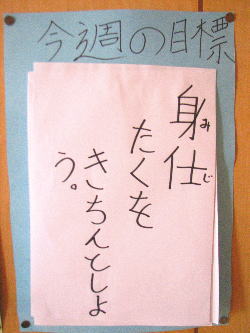 今週の目標
身仕
みじ
たくを
きちんとしょ
う。